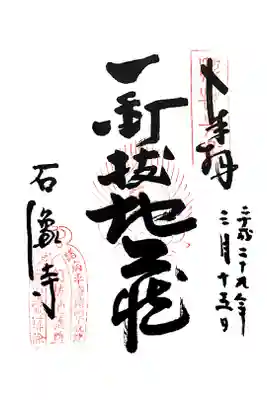 奉拝
平成二十九年
三月十五日
釘抜地蔵
石像寺